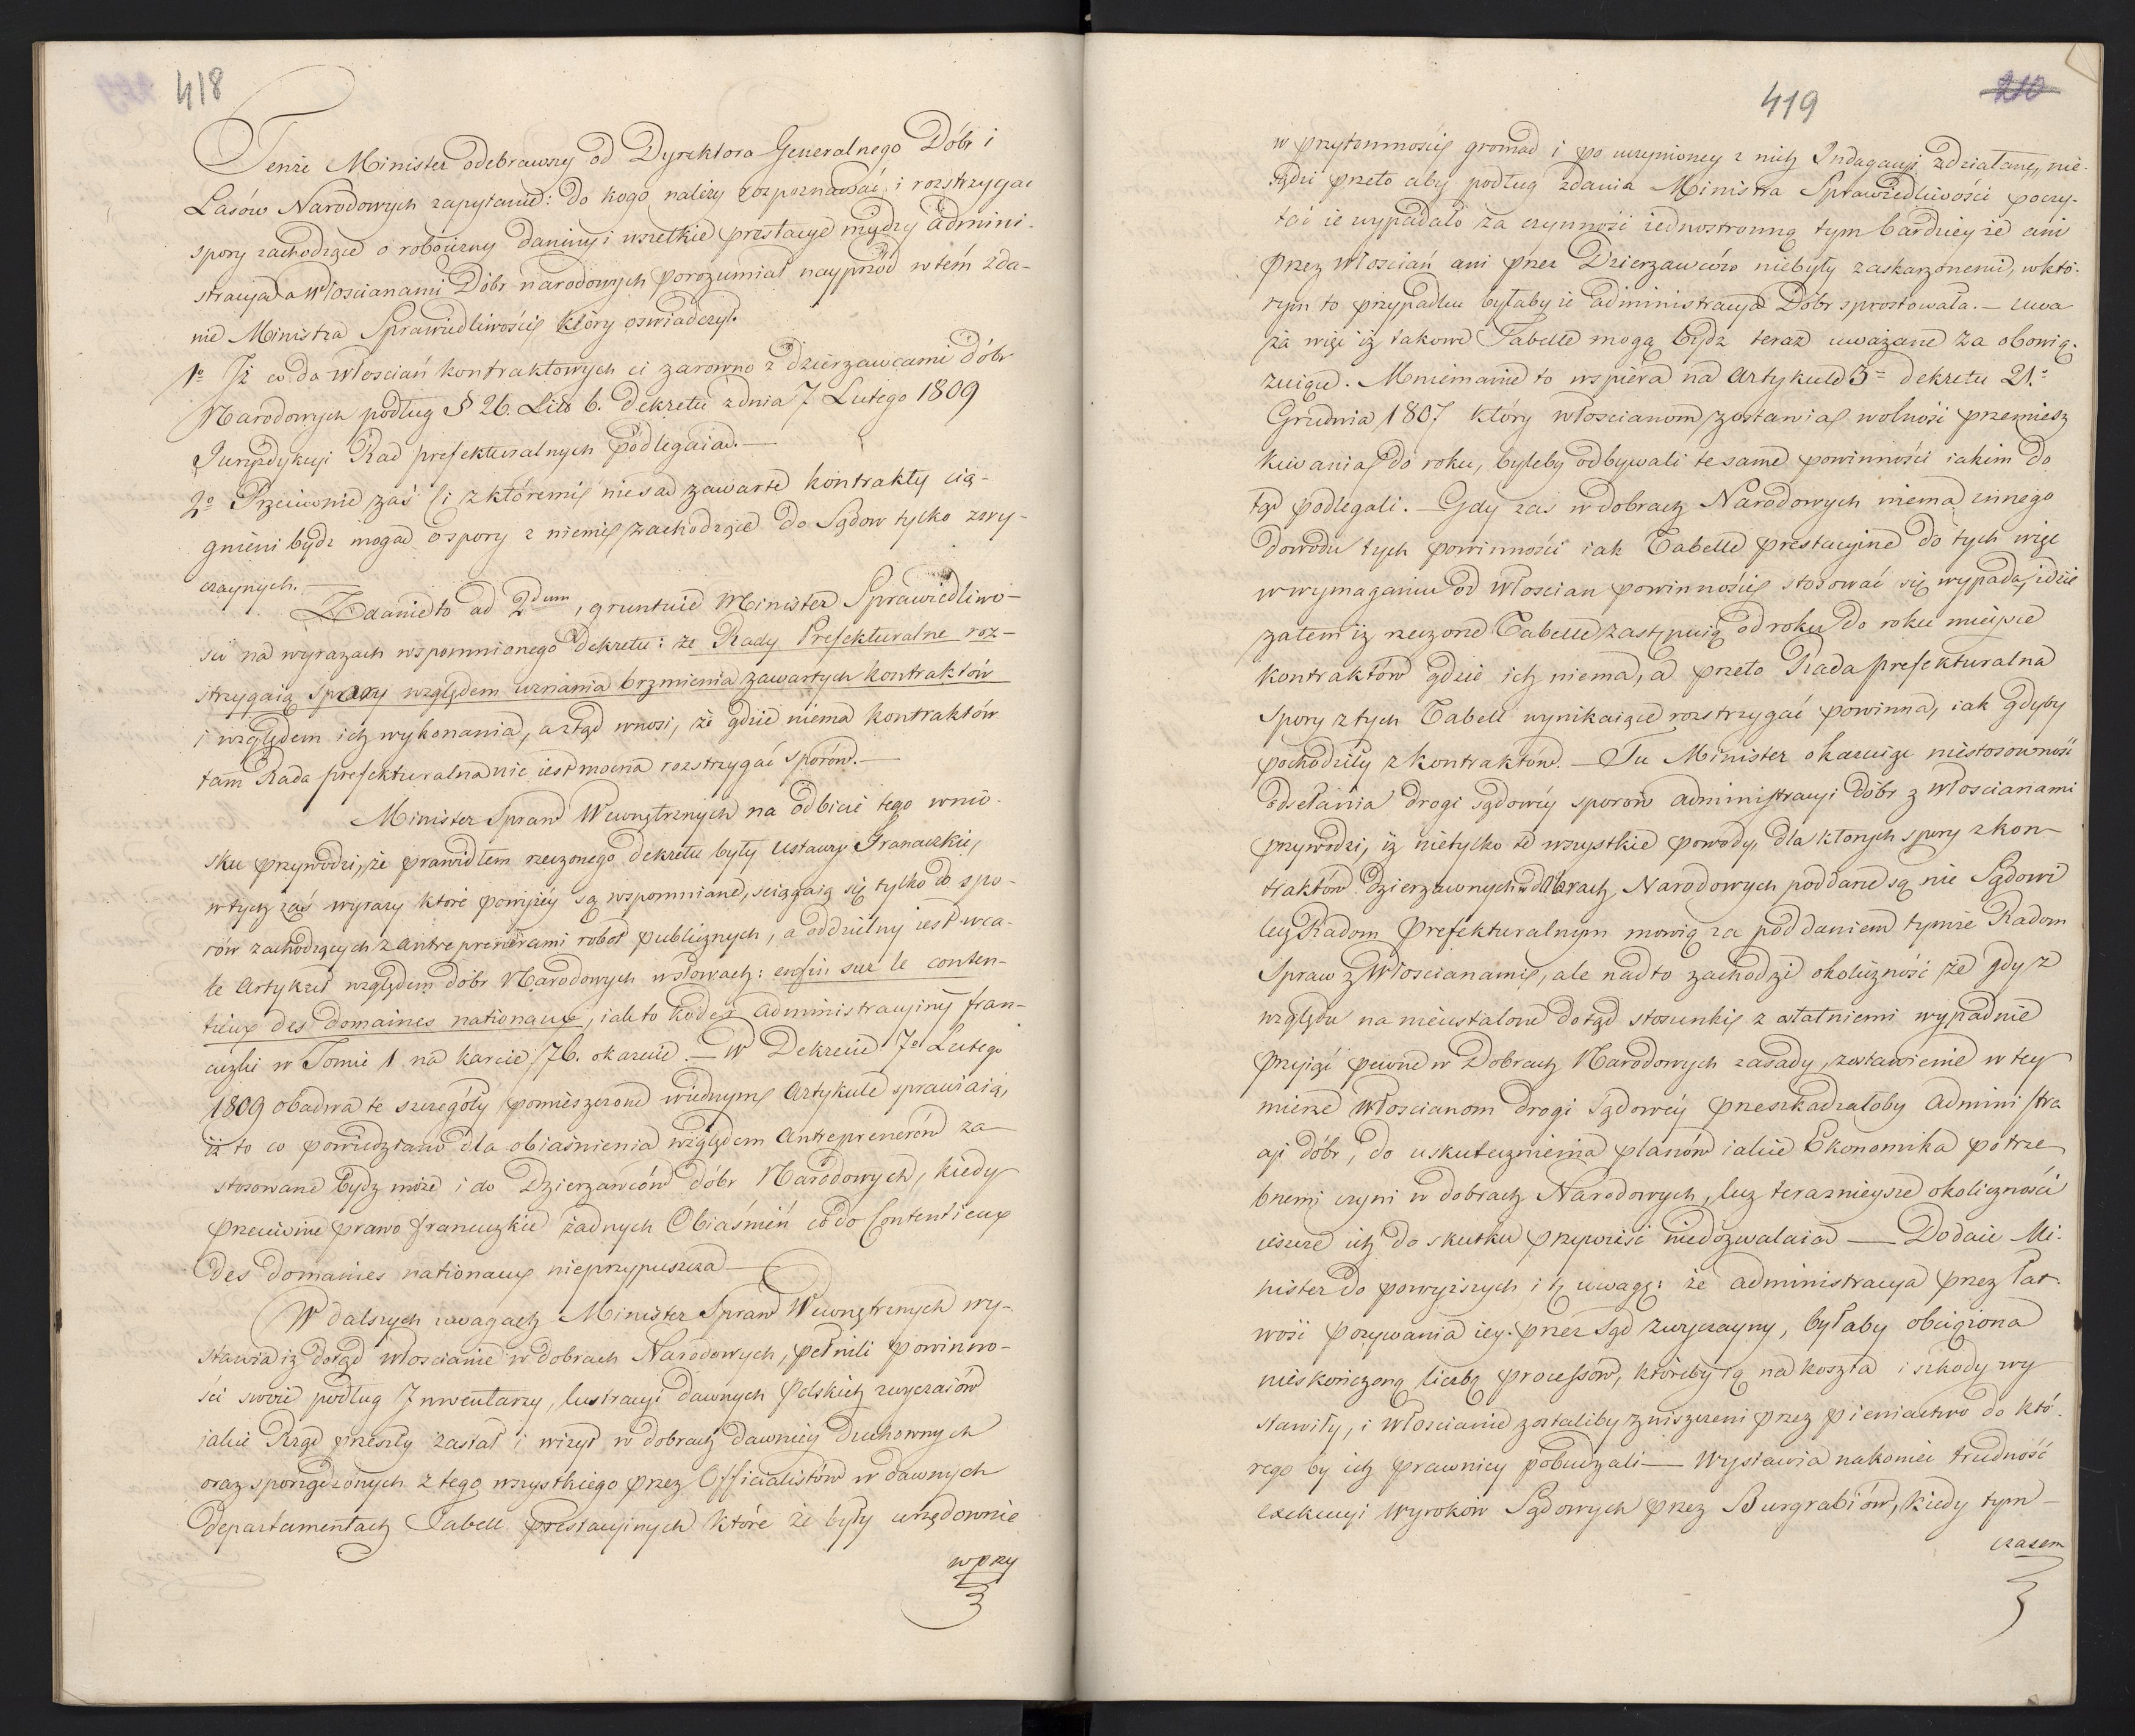 418
Tenże Minister odebrawszy od Dyrektora Generalnego Dóbr i
Lasów Narodowych zapytanie: do kogo należy rozpoznawać i rozstrzygać
spory zachodzące o robocizny daniny i wszelkie prestacye między Admini-
stracyą a Włoscianami Dóbr narodowych porozumiał nayprzód w tém zda-
nie Ministra Sprawiedliwości który oswiadczył.
1o Iż co do Włoscian kontraktowych ci zarowno z dzierzawcami dóbr
Narodowych podług § 26. Lito b. Dekretu z dnia 7 Lutego 1809
Juryzdykcyi Rad prefekturalnych podlegaią.—
2o Przeciwnie zaś ci z któremi nie są zawarte kontrakty cią-
gnieni bydz mogą o spory z niemi zachodzące do Sądow tylko zwy-
czaynych.—
Zdanie to ad 2dum, gruntuie Minister Sprawiedliwo-
ści na wyrazach wspomnionego Dekretu: że Rady Prefekturalne roz-
strzygaią sprawy względem uznania brzmienia zawartych kontraktów
i względem ich wykonania, a ztąd wnosi, że gdzie niema kontraktów
tam Rada prefekturalna nie iest mocna rozstrzygać sporów.—
Minister Spraw Wewnętrznych na odbicie tego wnio-
sku przywodzi, że prawidłem rzeczonego dekretu były Ustawy Francuzkie,
w tych zaś wyrazy które powyżéy są wspomniane, sciągaią się tylko do spo-
rów zachodzących z antreprenerami robot publicznych, a oddzielny iest wca-
le Artykuł względem dóbr Narodowych w słowach: enfin sur le conten-
tieux des domaines nationaux, iak to kodex administracyiny fran-
cuzki w Tomie 1 na karcie 76. okazuie.— W Dekrecie 7o Lutego
1809 obadwa te szczegóły pomieszczone w iednym Artykule sprawiaią,
iż to co powiedziano dla obiaśnienia względem antreprenerów za-
stosowane bydz może i do Dzierzawców dóbr Narodowych, kiedy
przeciwnie prawo francuzkie żadnych Obiaśnień co do Contentieux
des domaines nationaux nieprzypuszcza—
W dalszych uwagach Minister Spraw Wewnętrznych wy-
stawia iz dotąd włoscianie w dobrach Narodowych, pełnili powinno-
ści swoie podług Inwentarzy, lustracyi dawnych Polskich zwyczaiów
iakie Rząd przeszły zastał i wziął w dobrach dawniéy Duchownych
oraz sporządzonych z tego wszystkiego przez Officialistów w dawnych
Departamentach Tabell prestacyinych które że były urzędownie
w przy
419
210
w przytomności gromad i po uczynioney z nich Indagacyi zdziałane, nie-
sądzi przeto aby podług zdania Ministra Sprawiedliwości poczy-
tać ie wypadało za czynność iednostronną tym bardziey ze ani
przez Włoscian ani przez Dzierzawców niebyły zaskarzonemi, w któ-
rym to przypadku byłaby ie administracya Dóbr sprostowała.— uwa
ża więc iz takowe Tabelle mogą bydz teraz uważane za obowią-
zuiące. Mniemanie to wspiera na Artykule 3m dekretu 21o
Grudnia 1807 który włoscianom zostawia wolność przemiesz
kiwania do roku, byleby odbywali te same powinności iakim do
tąd podlegali.— Gdy zas w dobrach Narodowych niema innego
dowodu tych powinności iak Tabelle prestacyine do tych więc
w wymaganiu od Włoscian powinności stosować się wypada, idzie
zatem iz rzeczone Tabelle zastępuią od roku do roku mieysce
kontraktów gdzie ich niema, a przeto Rada prefekturalna
spory z tych Tabell wynikaiące rozstrzygać powinna, iak gdyby
pochodziły z kontraktów.— Tu Minister okazuiąc niestosowność
odesłania drogi sądowéy sporów administracyi dóbr z Włoscianami
przywodzi, iz nietylko te wszystkie powody, dla których spory z kon-
traktów dzierzawnych w dobrach Narodowych poddane są nie Sądowi
lecz Radom Prefekturalnym mowią za poddaniem tymże Radom
Spraw z Włoscianami, ale nadto zachodzi okoliczność że gdy z
względu na nieustalone dotąd stosunki z ostatniemi wypadnie
przyiąć pewne w Dobrach Narodowych zasady, zostawienie w tey
mierze Włoscianom drogi Sądowéy przeszkadzałoby administra
cyi dóbr, do uskutecznienia planów iakie Ekonomika potrze
bnemi czyni w dobrach Narodowych, lecz terazniejsze okoliczności
ieszcze ich do skutku przywieść niedozwalaią — Dodaie Mi-
nister do powyższych i tę uwagę: że administracya przez łat-
wość pozywania iey przez Sąd zwyczayny, byłaby obciążona
nieskończoną liczbą processów, któreby ią na koszta i szkody wy
stawiły, i włoscianie zostaliby zniszczeni przez pieniactwo do któ-
rego by ich prawnicy pobudzali — Wystawia nakoniec trudność
exekucyi wyroków Sądowych przez Burgrabiów, kiedy tym-
czasem